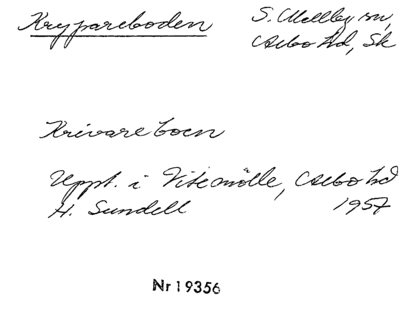 Krypareboden
S. Mellby sn,
Albo hd, Sk
Krivareboen
Uppt. i Vitemölle, Albo hd
H. Sundell 1957
Nr 19356